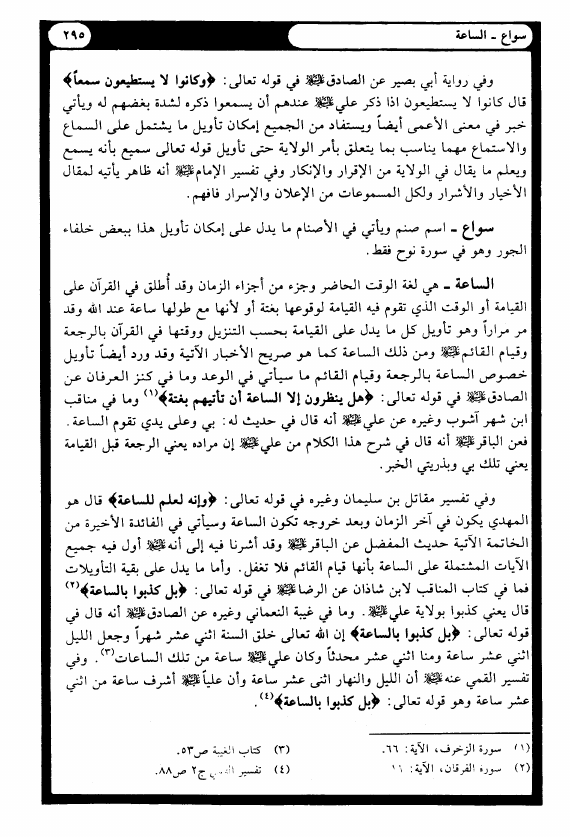 سواع ـ الساعة
٢٩٥
وفي رواية أبي بصير عن الصادق عليه السلام في قوله تعالى: ﴿وكانوا لا يستطيعون سمعاً﴾
قال كانوا لا يستطيعون اذا ذكر علي عليه السلام عندهم أن يسمعوا ذكره لشدة بغضهم له ويأتي
خبر في معنى الأعمى أيضاً ويستفاد من الجميع إمكان تأويل ما يشتمل على السماع
والاستماع مهما يناسب بما يتعلق بأمر الولاية حتى تأويل قوله تعالى سميع بأنه يسمع
ويعلم ما يقال في الولاية من الإقرار والإنكار وفي تفسير الإمام عليه السلام أنه ظاهر يأتيه لمقال
الأخيار والأشرار ولكل المسموعات من الإعلان والإسرار فافهم.
سواع ـ اسم صنم ويأتي في الأصنام ما يدل على إمكان تأويل هذا ببعض خلفاء
الجور وهو في سورة نوح فقط.
الساعة ـ هي لغة الوقت الحاضر وجزء من أجزاء الزمان وقد أُطلق في القرآن على
القيامة أو الوقت الذي تقوم فيه القيامة لوقوعها بغتة أو لأنها مع طولها ساعة عند الله وقد
مر مراراً وهو تأويل كل ما يدل على القيامة بحسب التنزيل ووقتها في القرآن بالرجعة
وقيام القائم عليه السلام ومن ذلك الساعة كما هو صريح الأخبار الآتية وقد ورد أيضاً تأويل
خصوص الساعة بالرجعة وقيام القائم ما سيأتي في الوعد وما في كنز العرفان عن
الصادق عليه السلام في قوله تعالى: ﴿هل ينظرون إلا الساعة أن تأتيهم بغتة﴾(١) وما في مناقب
ابن شهر آشوب وغيره عن علي عليه السلام أنه قال في حديث له: بي وعلى يدي تقوم الساعة.
فعن الباقر عليه السلام أنه قال في شرح هذا الكلام من علي عليه السلام إن مراده يعني الرجعة قبل القيامة
يعني تلك بي وبذريتي الخبر.
وفي تفسير مقاتل بن سليمان وغيره في قوله تعالى: ﴿وإنه لعلم للساعة﴾ قال هو
المهدي يكون في آخر الزمان وبعد خروجه تكون الساعة وسيأتي في الفائدة الأخيرة من
الخاتمة الآتية حديث المفضل عن الباقر عليه السلام وقد أشرنا فيه إلى أنه عليه السلام أول فيه جميع
الآيات المشتملة على الساعة بأنها قيام القائم فلا تغفل. وأما ما يدل على بقية التأويلات
فما في كتاب المناقب لابن شاذان عن الرضا عليه السلام في قوله تعالى: ﴿بل كذبوا بالساعة﴾(٢)
قال يعني كذبوا بولاية علي عليه السلام. وما في غيبة النعماني وغيره عن الصادق عليه السلام أنه قال في
قوله تعالى: ﴿بل كذبوا بالساعة﴾ إن الله تعالى خلق السنة اثني عشر شهراً وجعل الليل
اثني عشر ساعة ومنا اثني عشر محدثاً وكان علي عليه السلام ساعة من تلك الساعات(٣). وفي
تفسير القمي عنه عليه السلام أن الليل والنهار اثنى عشر ساعة وأن علياً عليه السلام أشرف ساعة من اثني
عشر ساعة وهو قوله تعالى: ﴿بل كذبوا بالساعة﴾(٤).
(١) سورة الزخرف، الآية: ٦٦.
(٢) سورة الفرقان، الآية: ١١
(٣) كتاب الغيبة ص٥٣.
(٤) تفسير القمي ج٢ ص٨٨.